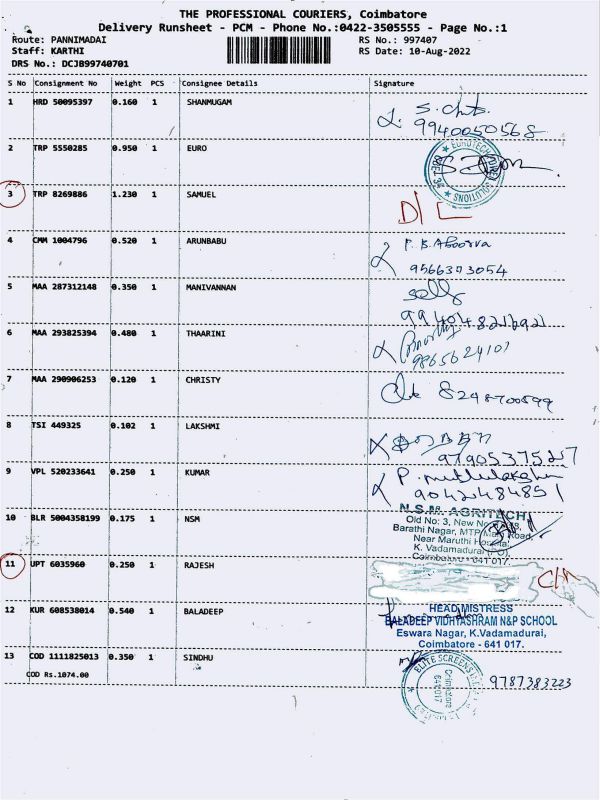 THE PROFESSIONAL COURIERS, Coimbatore
Delivery Runsheet - PCM - Phone No.:0422-3505555 - Page No.:1
Route: PANNIMADAI
RS No.: 997407
Staff: KARTHI
RS Date: 10-Aug-2022
DRS No.: DCJB99740701
S No Consignment No Weight PCS Consignee Details Signature
1 HRD 50095397 0.160 1 SHANMUGAM
9940050568
2 TRP 5550285 0.950 1 EURO
3 TRP 8269886 1.230 1 SAMUEL
D/L
4 CMM 1004796 0.520 1 ARUNBABU P. B. Aboorva
9566373054
5 MAA 287312148 0.350 1 MANIVANNAN
6 MAA 293825394 0.480 1 THAARINI
9865624101
7 MAA 290906253 0.120 1 CHRISTY
8248700899
8 TSI 449325 0.102 1 LAKSHMI
9790537527
9 VPL 520233641 0.250 1 KUMAR
9042484851
10 BLR 5004358199 0.175 1 NSM N.S.M. AGRITECH
Old No: 3, New No
Barathi Nagar, MTP Main Road,
Near Maruthi Hospital
K. Vadamadurai (PO)
Coimbatore - 641 017.
11 UPT 6035960 0.250 1 RAJESH
12 KUR 608538014 0.540 1 BALADEEP
HEADMISTRESS
BALADEEP VIDHYASHRAM N&P SCHOOL
Eswara Nagar, K.Vadamadurai,
Coimbatore - 641 017.
13 COD 1111825013 0.350 1 SINDHU
9787383223
COD Rs.1074.00